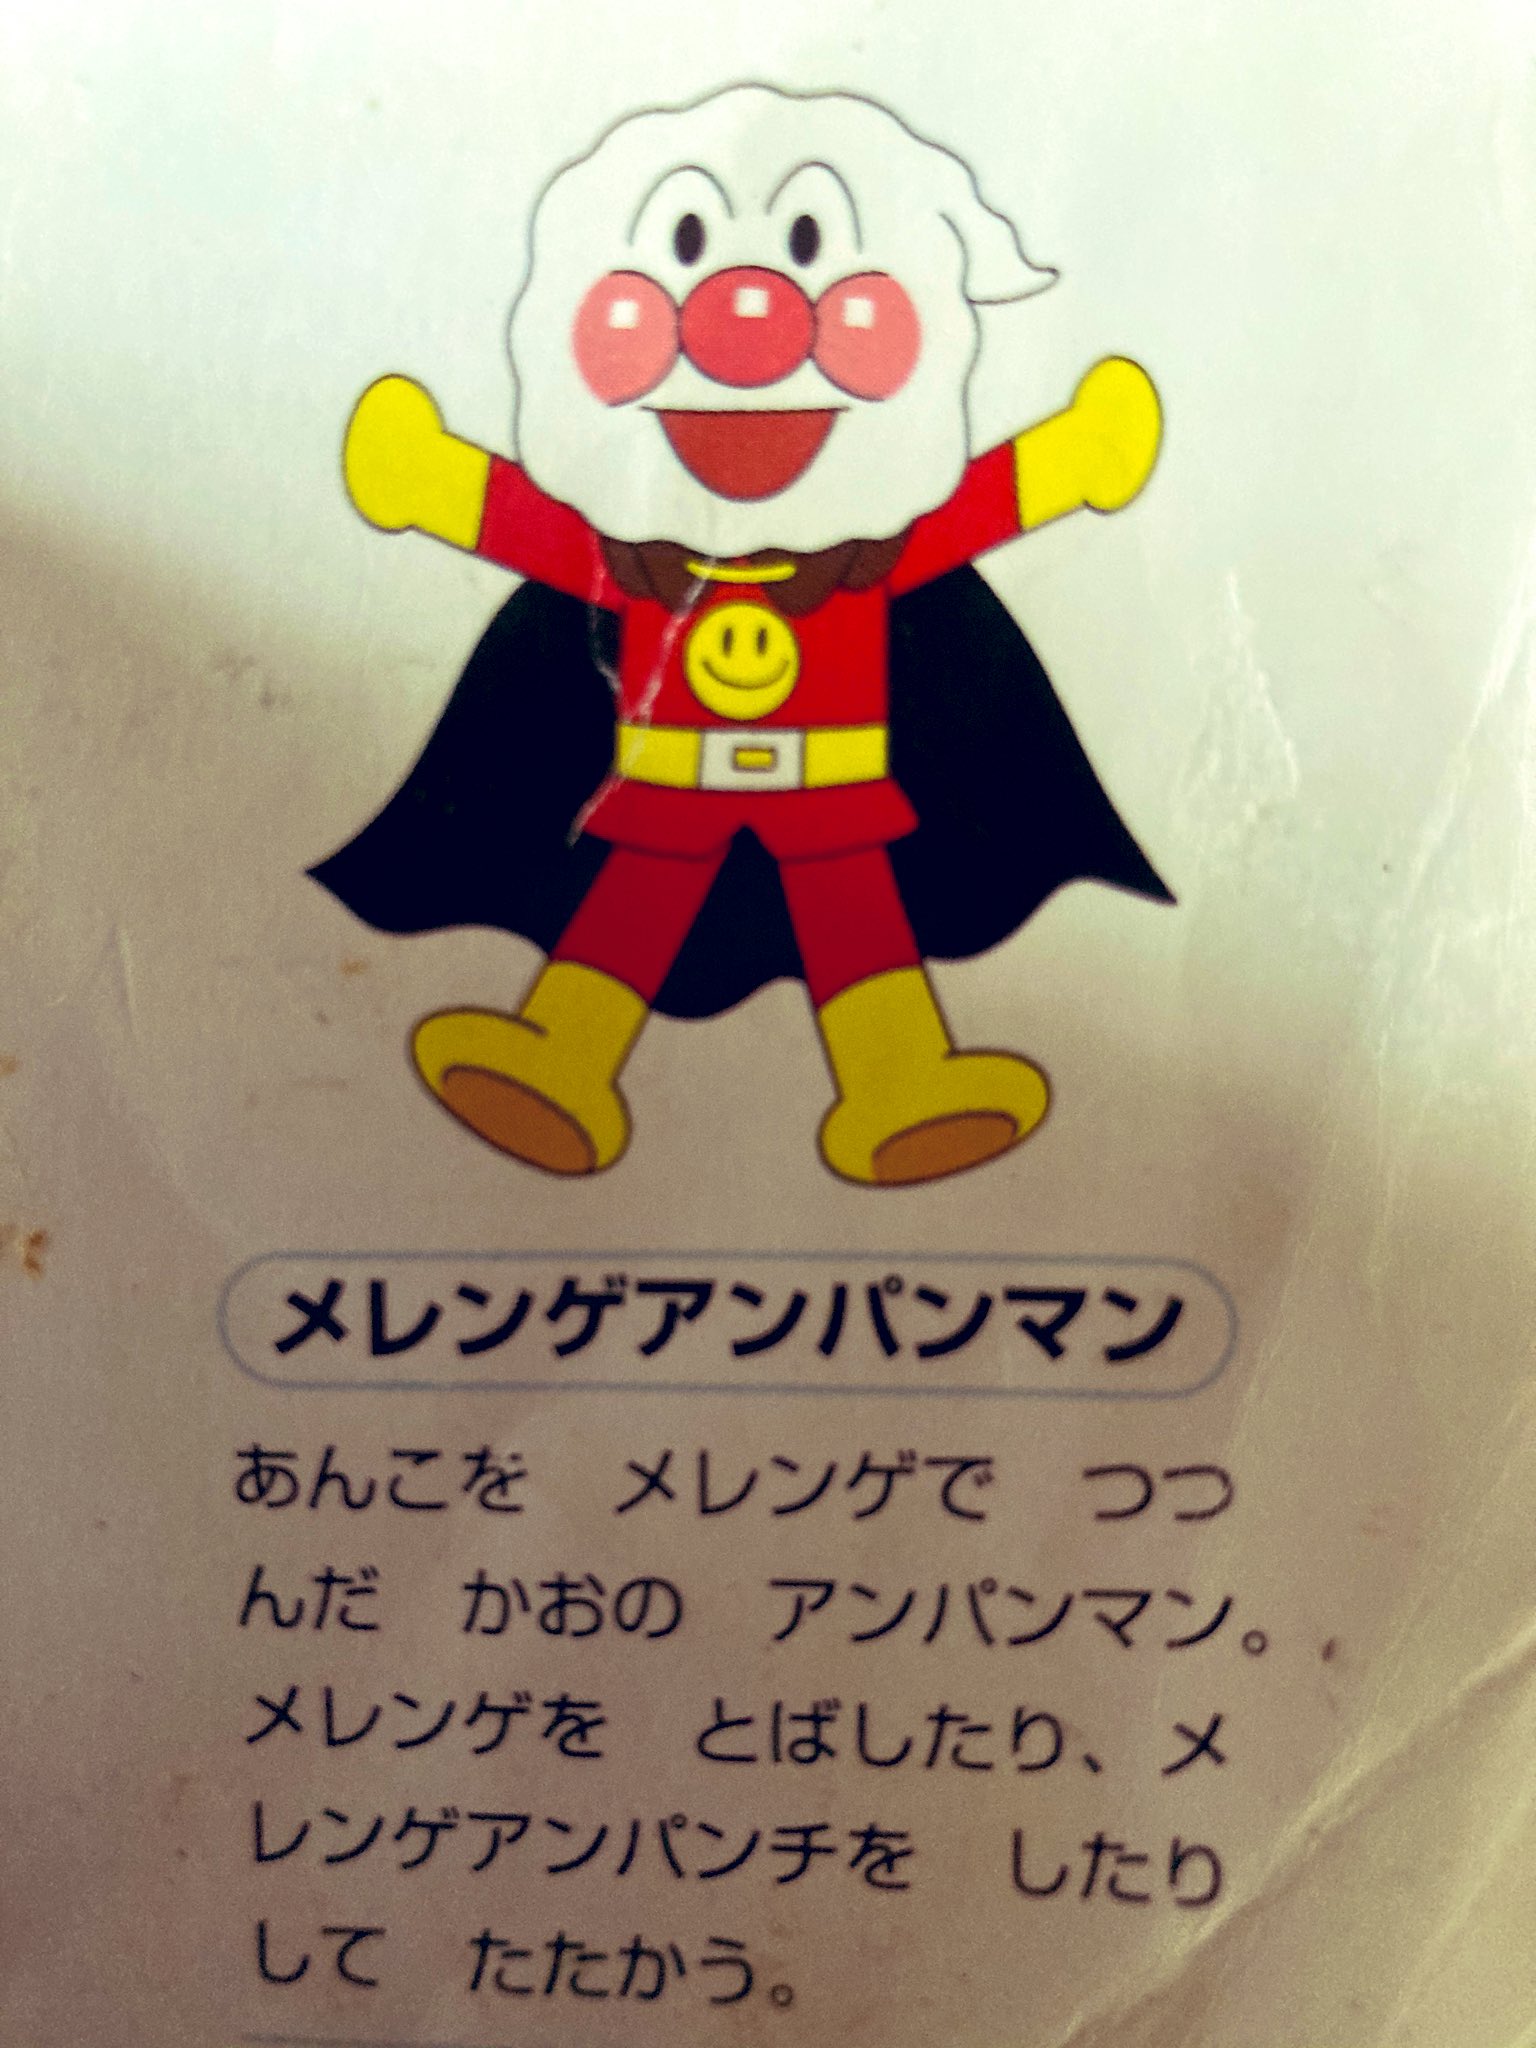 メレンゲアンパンマン
あんこを　メレンゲで　つつ
んだ　かおの　アンパンマン。
メレンゲを　とばしたり、メ
レンゲアンパンチを　したり
して　たたかう。